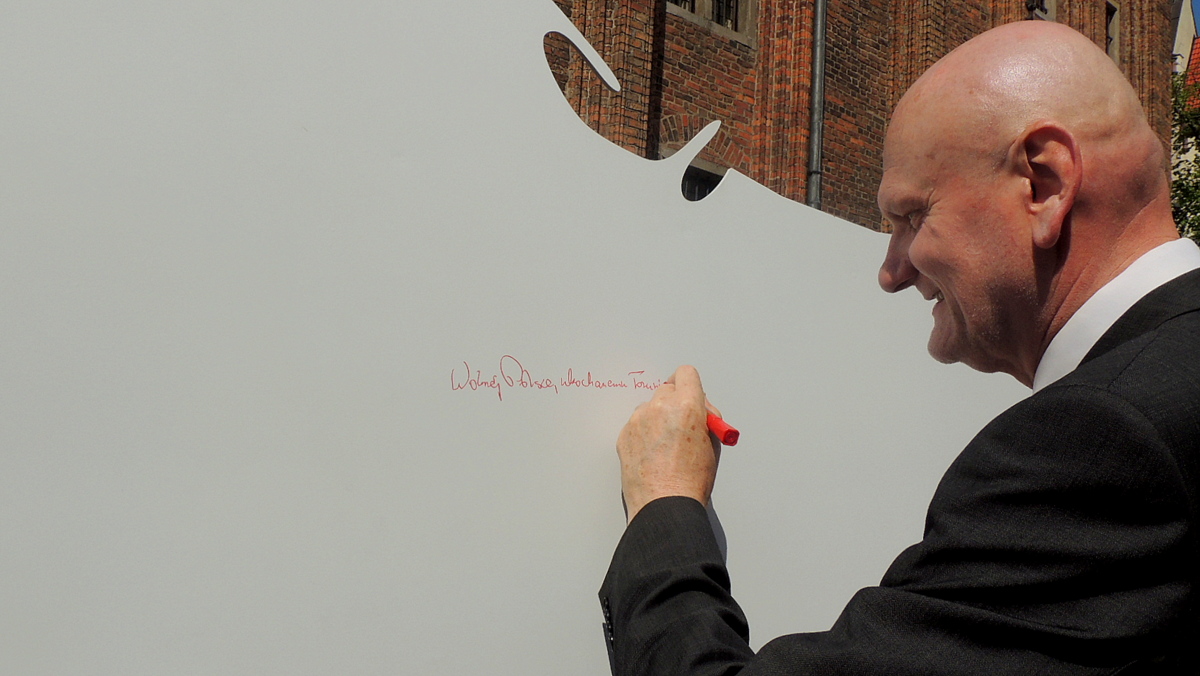 Wolnej Polsce, ukochanemu